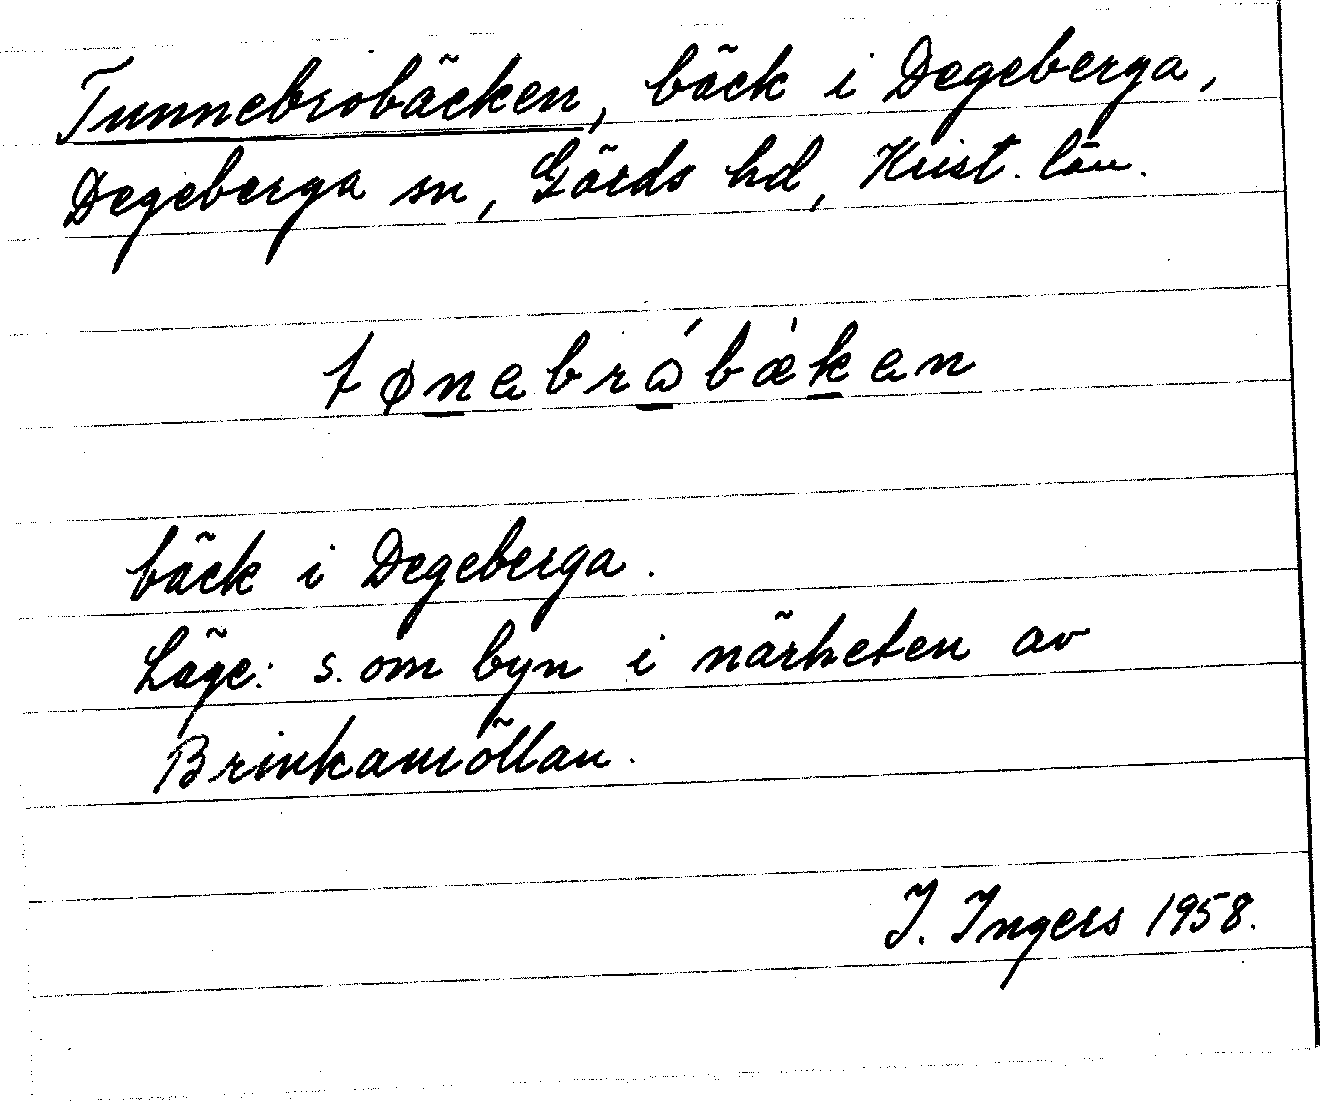 Tunnebrobäcken, bäck i Degeberga,
Degeberga sn, Gärds hd, Krist. län.
tønebråbæken
bäck i Degeberga.
Läge: s. om byn i närheten av
Brinkamöllan.
I. Ingers 1958.